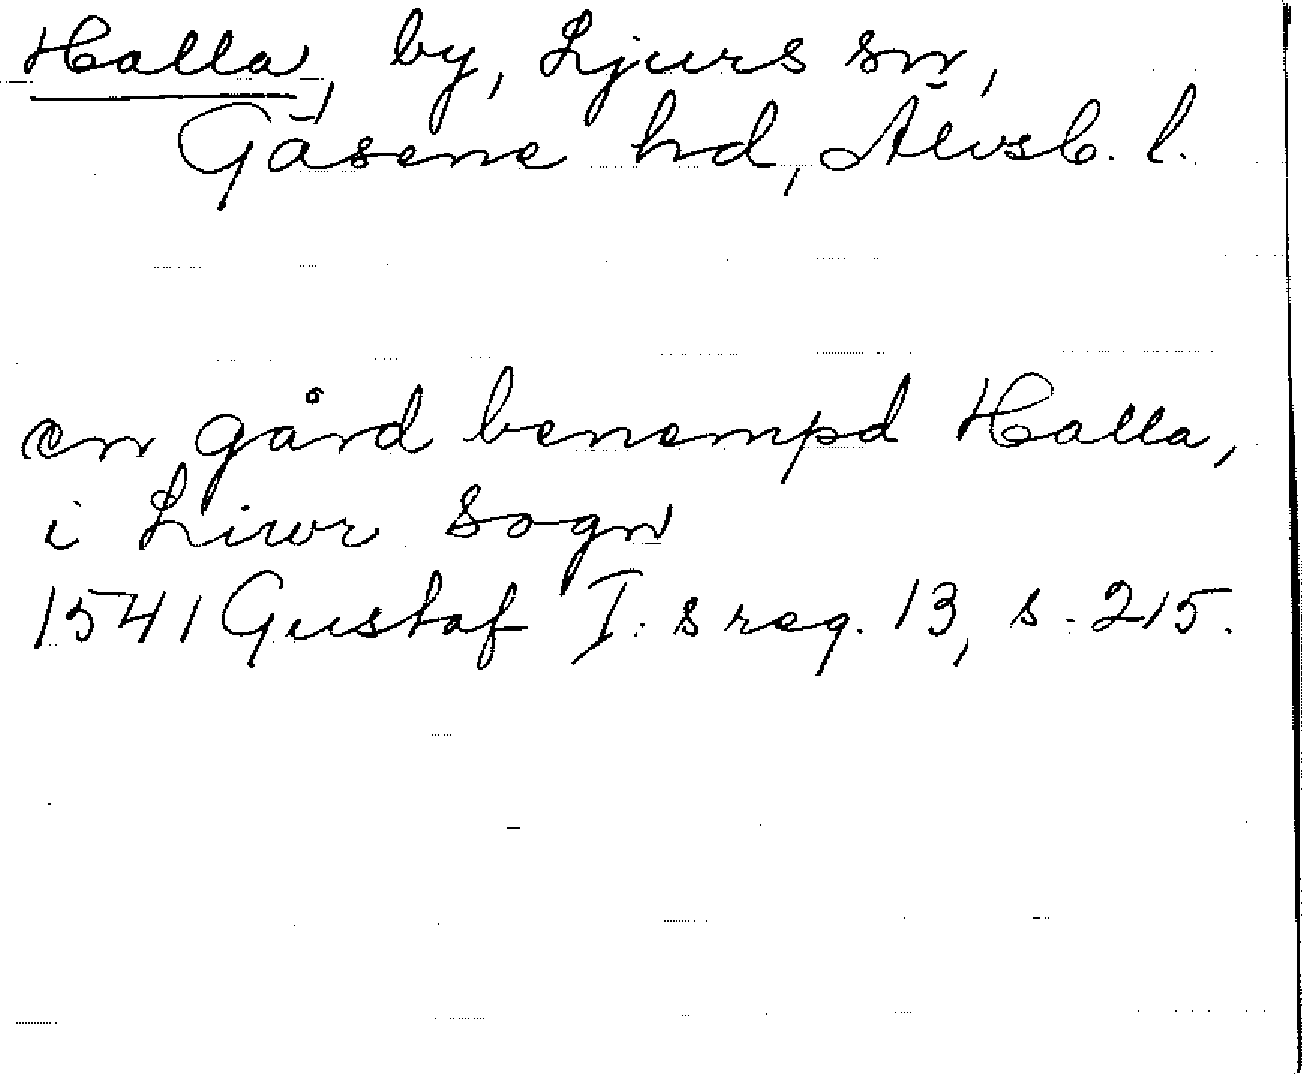 Halla, by, Ljurs sn,
Gäsene hd, Älvsb. l.
en gård benempd Halla,
i Liwr Sogn
1541 Gustaf I:s reg. 13, s. 215.